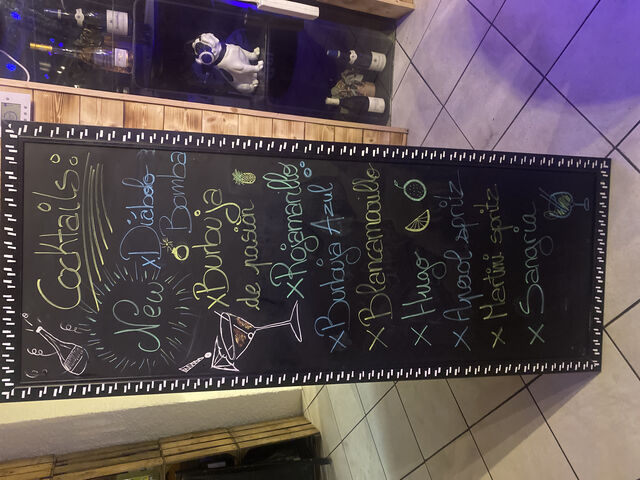 Cocktails:
New x Diablo
Bomba
x Burbuja
de pasión
x Rojamarillo
x Burbuja Azul
x Blancamarillo
x Hugo
x Aperol spritz
x Martini spitz
x Sangria